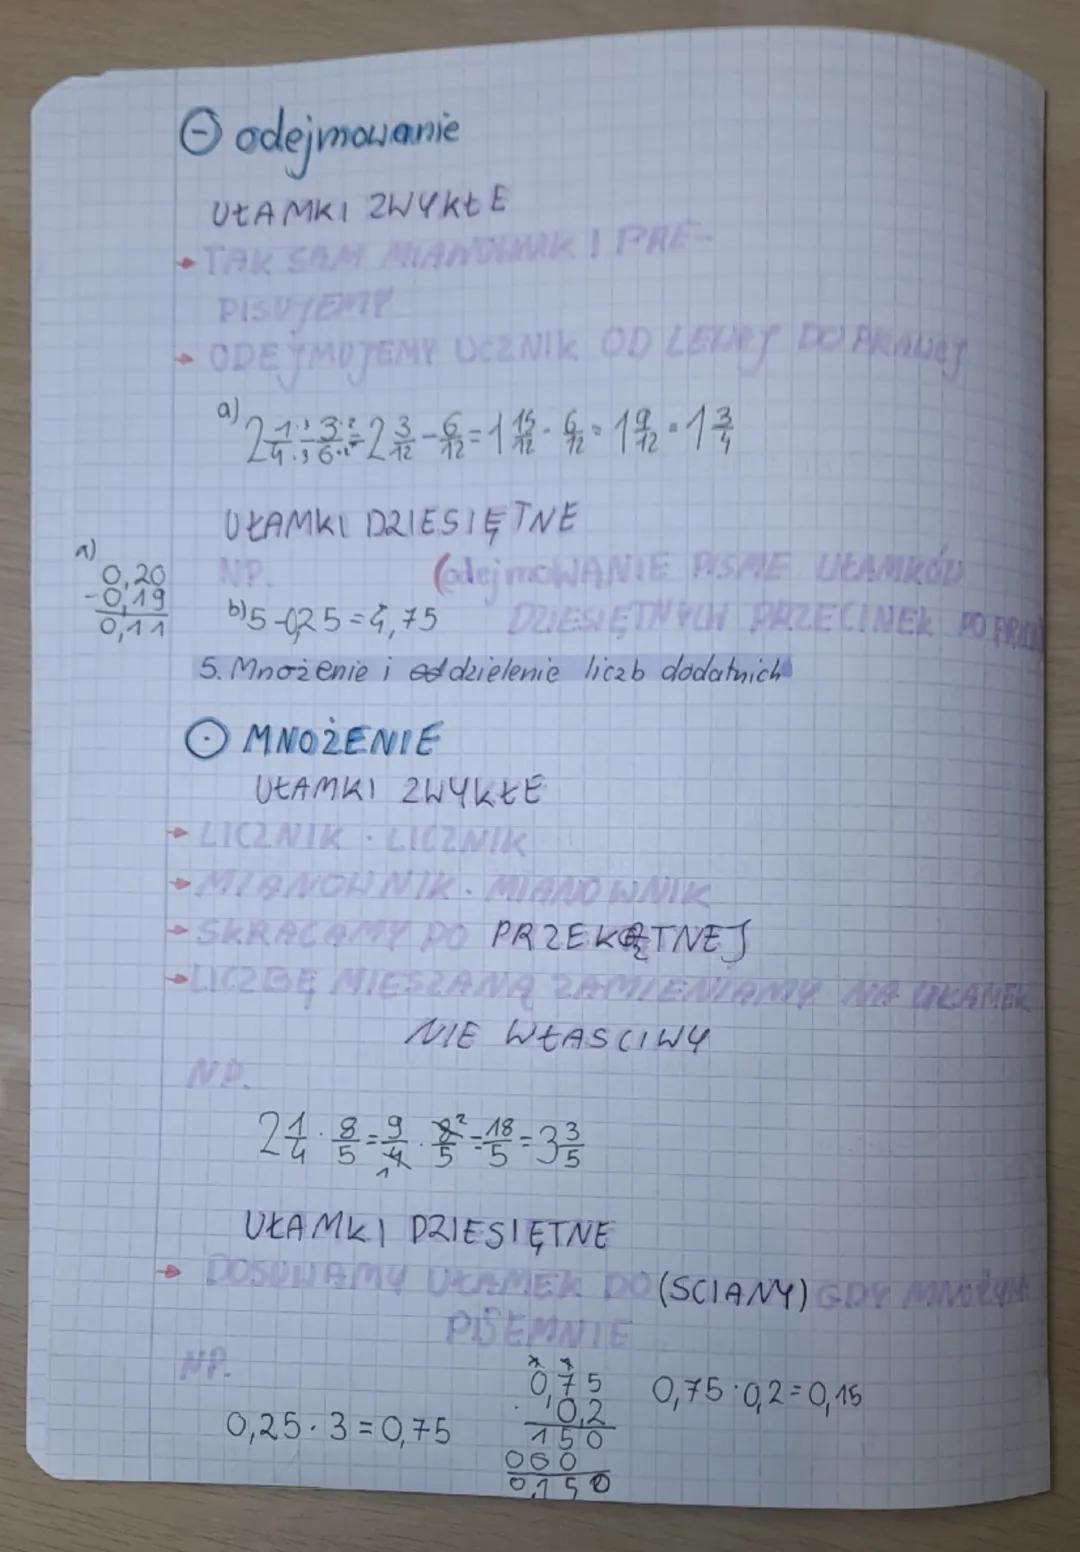 ⊖ odejmowanie
UŁAMKI ZWYKŁE
→ TAK SAM MIANOWNIK I PRE-
PISUJEMY
→ ODEJMUJEMY LICZNIK OD LEWEJ DO PRAWEJ
a) 2 1/4 ·3/·3 - 3/6 ·2/·2 = 2 3/12 - 6/12 = 1 15/12 - 6/12 = 1 9/12 = 1 3/4
UŁAMKI DZIESIĘTNE
a)
0,20
-0,19
0,11
NP. (odejmOWANIE PISME UŁAMKÓW
b) 5-0,25=4,75 DZIESIĘTNYCH PRZECINEK PO
5. Mnożenie i dzielenie liczb dodatnich
⊙ MNOŻENIE
UŁAMKI ZWYKŁE
→ LICZNIK · LICZNIK
→ MIANOWNIK · MIANOWNIK
→ SKRACAMY PO PRZEKĄTNEJ
→ LICZBĘ MIESZANĄ ZAMIENIAMY NA UŁAMEK
NIE WŁASCIWY
NP.
2 1/4 · 8/5 = 9/4 1 · 8/5 2 = 18/5 = 3 3/5
UŁAMKI DZIESIĘTNE
→ DOSUWAMY UŁAMEK DO (SCIANY) GDY MNOŻYMY
PISEMNIE
NP.
0,25 · 3 = 0,75
0,75
· 0,2
150
000
0,150
0,75 · 0,2 = 0,15